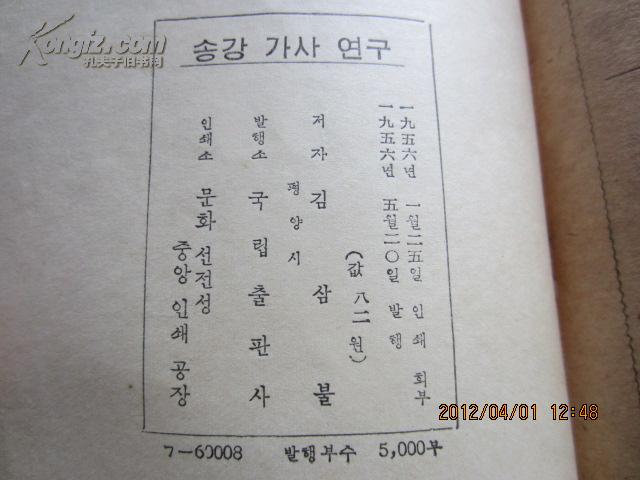 Kongfz.com
孔夫子旧书网
송강 가사 연구
一九五六년 一월二五일 인쇄 회부
一九五六년 五월二〇일 발행
(값 八二 원)
저자 김삼불
평양시
발행소 국립출판사
인쇄소 문화선전성
중앙 인쇄 공장
ㄱ—60008 발행부수 5,000부
2012/04/01 12:48